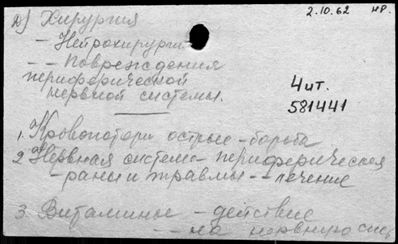 2.10.62 нр.
д) Хирургия
— Нейрохирургия
— — Повреждения
периферической
нервной системы.
4 ит.
581441
1. Кровопотери острые – борьба
2 Нервная система – периферическая
– раны и травмы – – лечение
3. Витамины – действие
– – на нервную сис